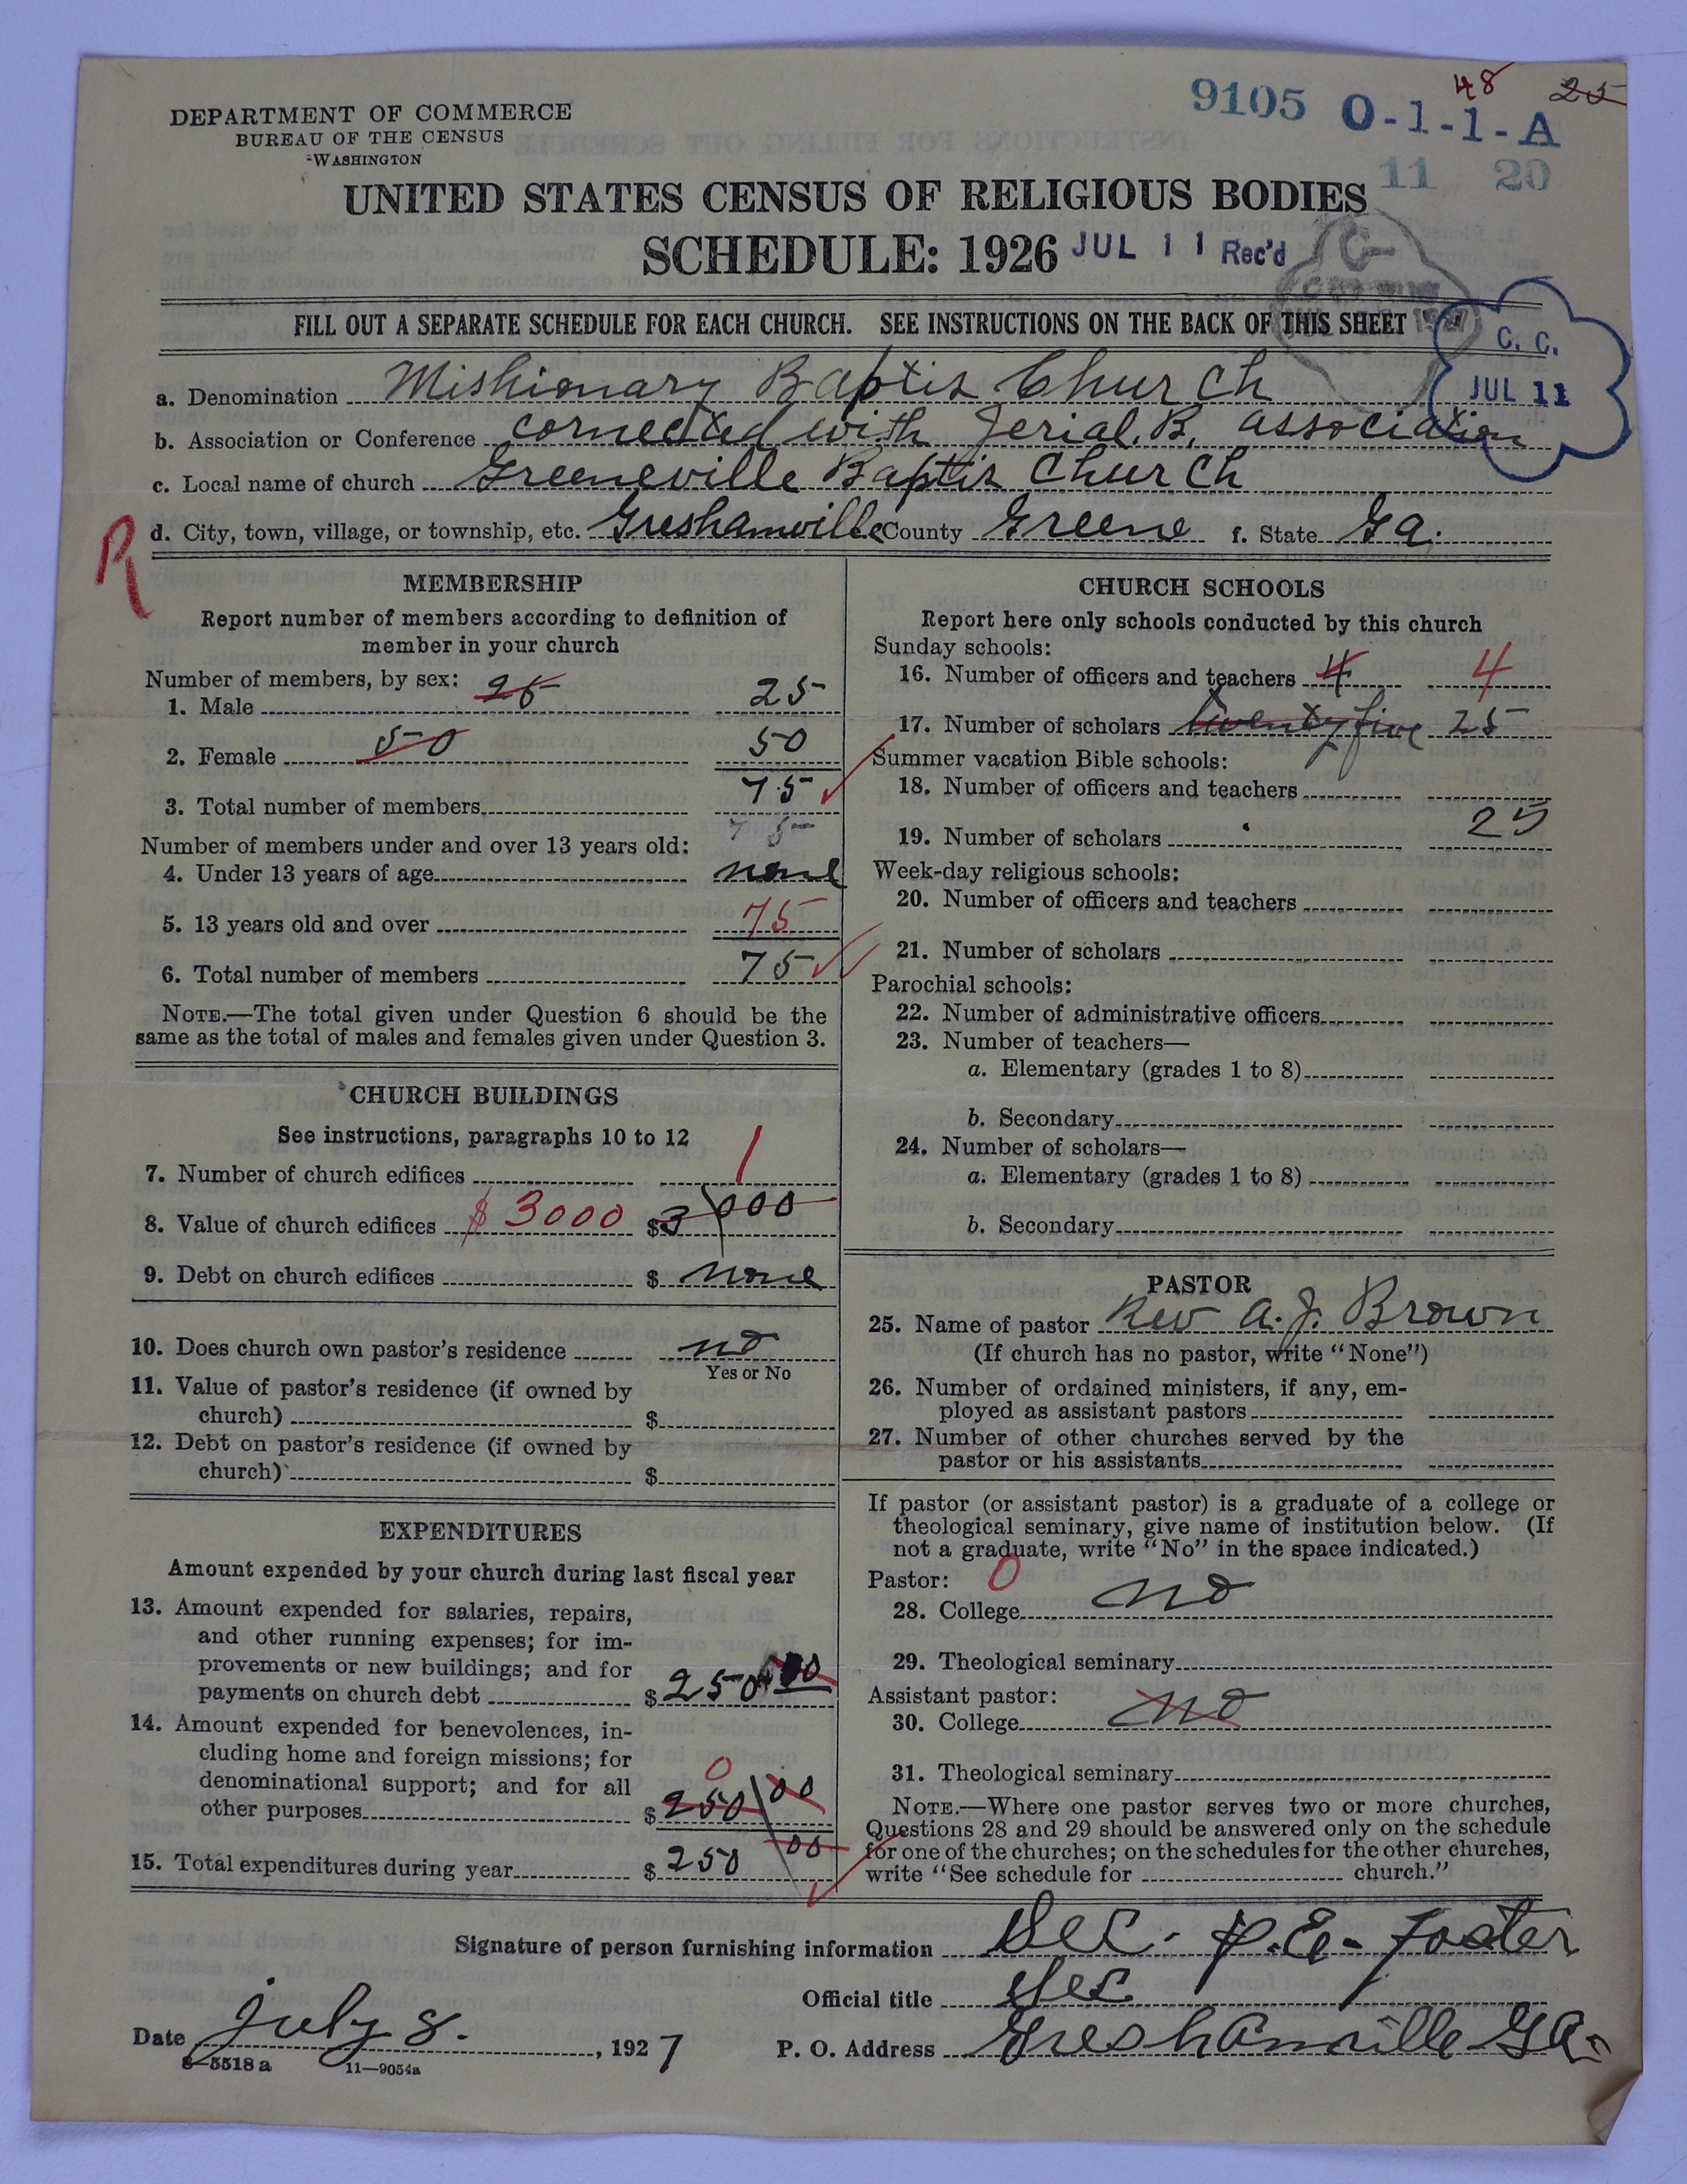 48 25
9105 O-1-1-A
11 20
DEPARTMENT OF COMMERCE
BUREAU OF THE CENSUS
WASHINGTON
UNITED STATES CENSUS OF RELIGIOUS BODIES
SCHEDULE: 1926 JUL 11 Rec'd
FILL OUT A SEPARATE SCHEDULE FOR EACH CHURCH. SEE INSTRUCTIONS ON THE BACK OF THIS SHEET
C. C.
JUL 11
a. Denomination Mishionary Baptis Church
b. Association or Conference cornected with Jerial. B. association
c. Local name of church Greeneville Baptis Church
R
d. City, town, village, or township, etc. Greshamville County Greene f. State Ga.
MEMBERSHIP
Report number of members according to definition of
member in your church
Number of members, by sex: 25
1. Male 25
2. Female 50 50
3. Total number of members 75
75
Number of members under and over 13 years old:
4. Under 13 years of age none
5. 13 years old and over 75
6. Total number of members 75
NOTE.—The total given under Question 6 should be the
same as the total of males and females given under Question 3.
CHURCH BUILDINGS
See instructions, paragraphs 10 to 12
7. Number of church edifices 1
8. Value of church edifices $3000 $3000
9. Debt on church edifices $ none
10. Does church own pastor's residence no
Yes or No
11. Value of pastor's residence (if owned by
church) $
12. Debt on pastor's residence (if owned by
church) $
EXPENDITURES
Amount expended by your church during last fiscal year
13. Amount expended for salaries, repairs,
and other running expenses; for im-
provements or new buildings; and for
payments on church debt $250 00
14. Amount expended for benevolences, in-
cluding home and foreign missions; for
denominational support; and for all 0
other purposes $250 00
15. Total expenditures during year $250 00
CHURCH SCHOOLS
Report here only schools conducted by this church
Sunday schools:
16. Number of officers and teachers 4 4
17. Number of scholars twenty five 25
Summer vacation Bible schools:
18. Number of officers and teachers
19. Number of scholars 25
Week-day religious schools:
20. Number of officers and teachers
21. Number of scholars
Parochial schools:
22. Number of administrative officers
23. Number of teachers—
a. Elementary (grades 1 to 8)
b. Secondary
24. Number of scholars—
a. Elementary (grades 1 to 8)
b. Secondary
PASTOR
25. Name of pastor Rev A. J. Brown
(If church has no pastor, write "None")
26. Number of ordained ministers, if any, em-
ployed as assistant pastors
27. Number of other churches served by the
pastor or his assistants
If pastor (or assistant pastor) is a graduate of a college or
theological seminary, give name of institution below. (If
not a graduate, write "No" in the space indicated.)
Pastor: 0
28. College no
29. Theological seminary
Assistant pastor:
30. College no
31. Theological seminary
NOTE.—Where one pastor serves two or more churches,
Questions 28 and 29 should be answered only on the schedule
for one of the churches; on the schedules for the other churches,
write "See schedule for church."
Signature of person furnishing information Sec. P. E. Foster
Official title Sec
Date July 8. , 1927 P. O. Address Greshamville Ga.
8-5518a 11—9054a